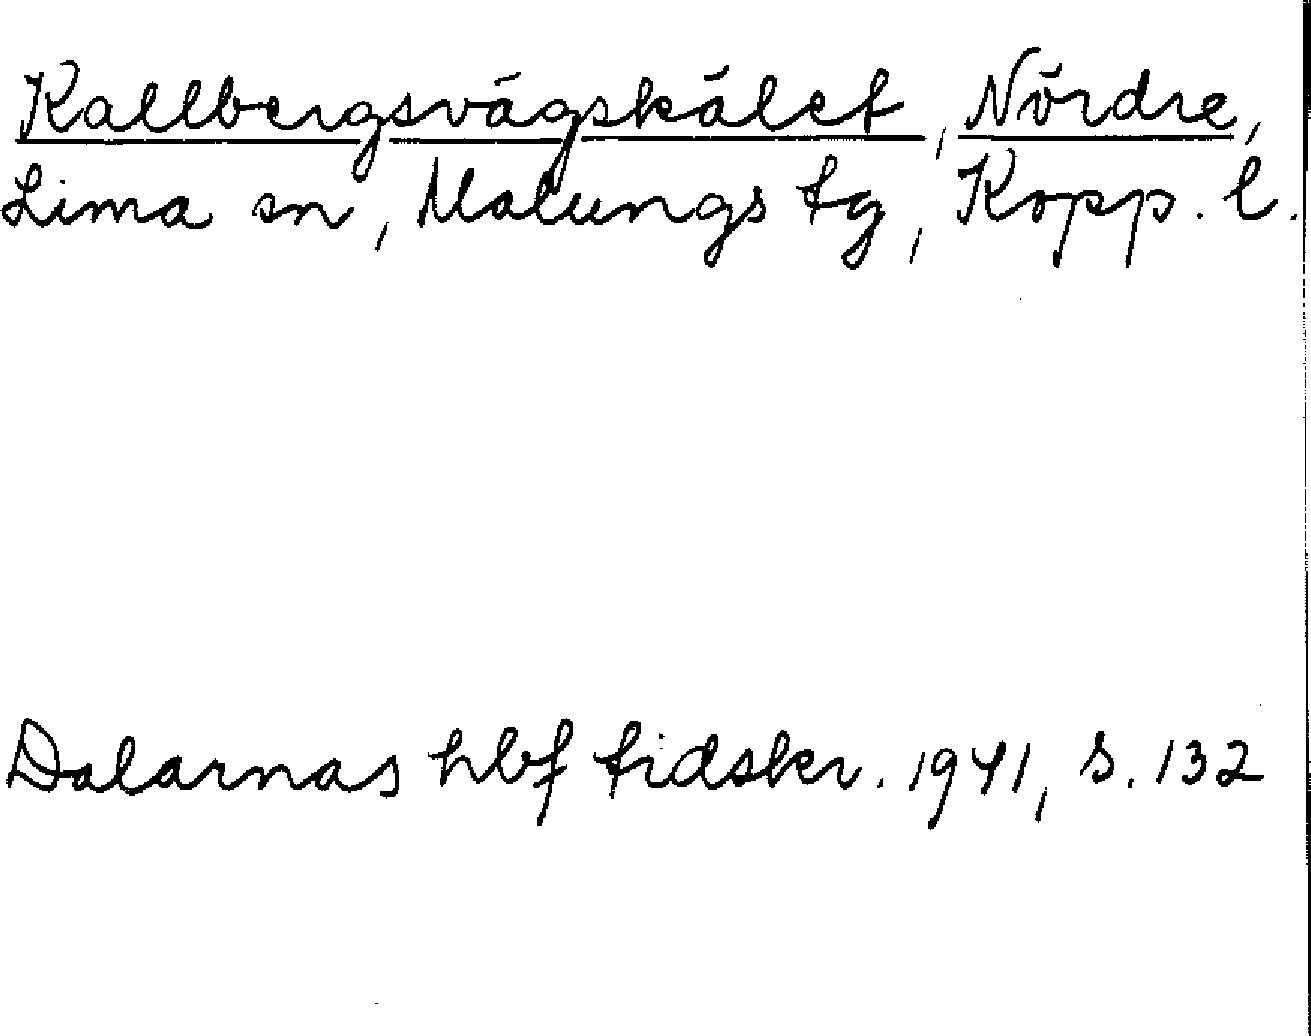 Kallbergsvägskälet, Nördre,
Lima sn, Malungs tg, Kopp. l.
Dalarnas hbf tidskr. 1941, s. 132